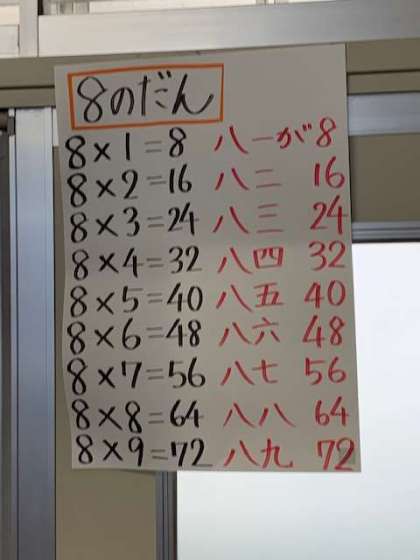 8のだん
8×1=8 八一が8
8×2=16 八二 16
8×3=24 八三 24
8×4=32 八四 32
8×5=40 八五 40
8×6=48 八六 48
8×7=56 八七 56
8×8=64 八八 64
8×9=72 八九 72